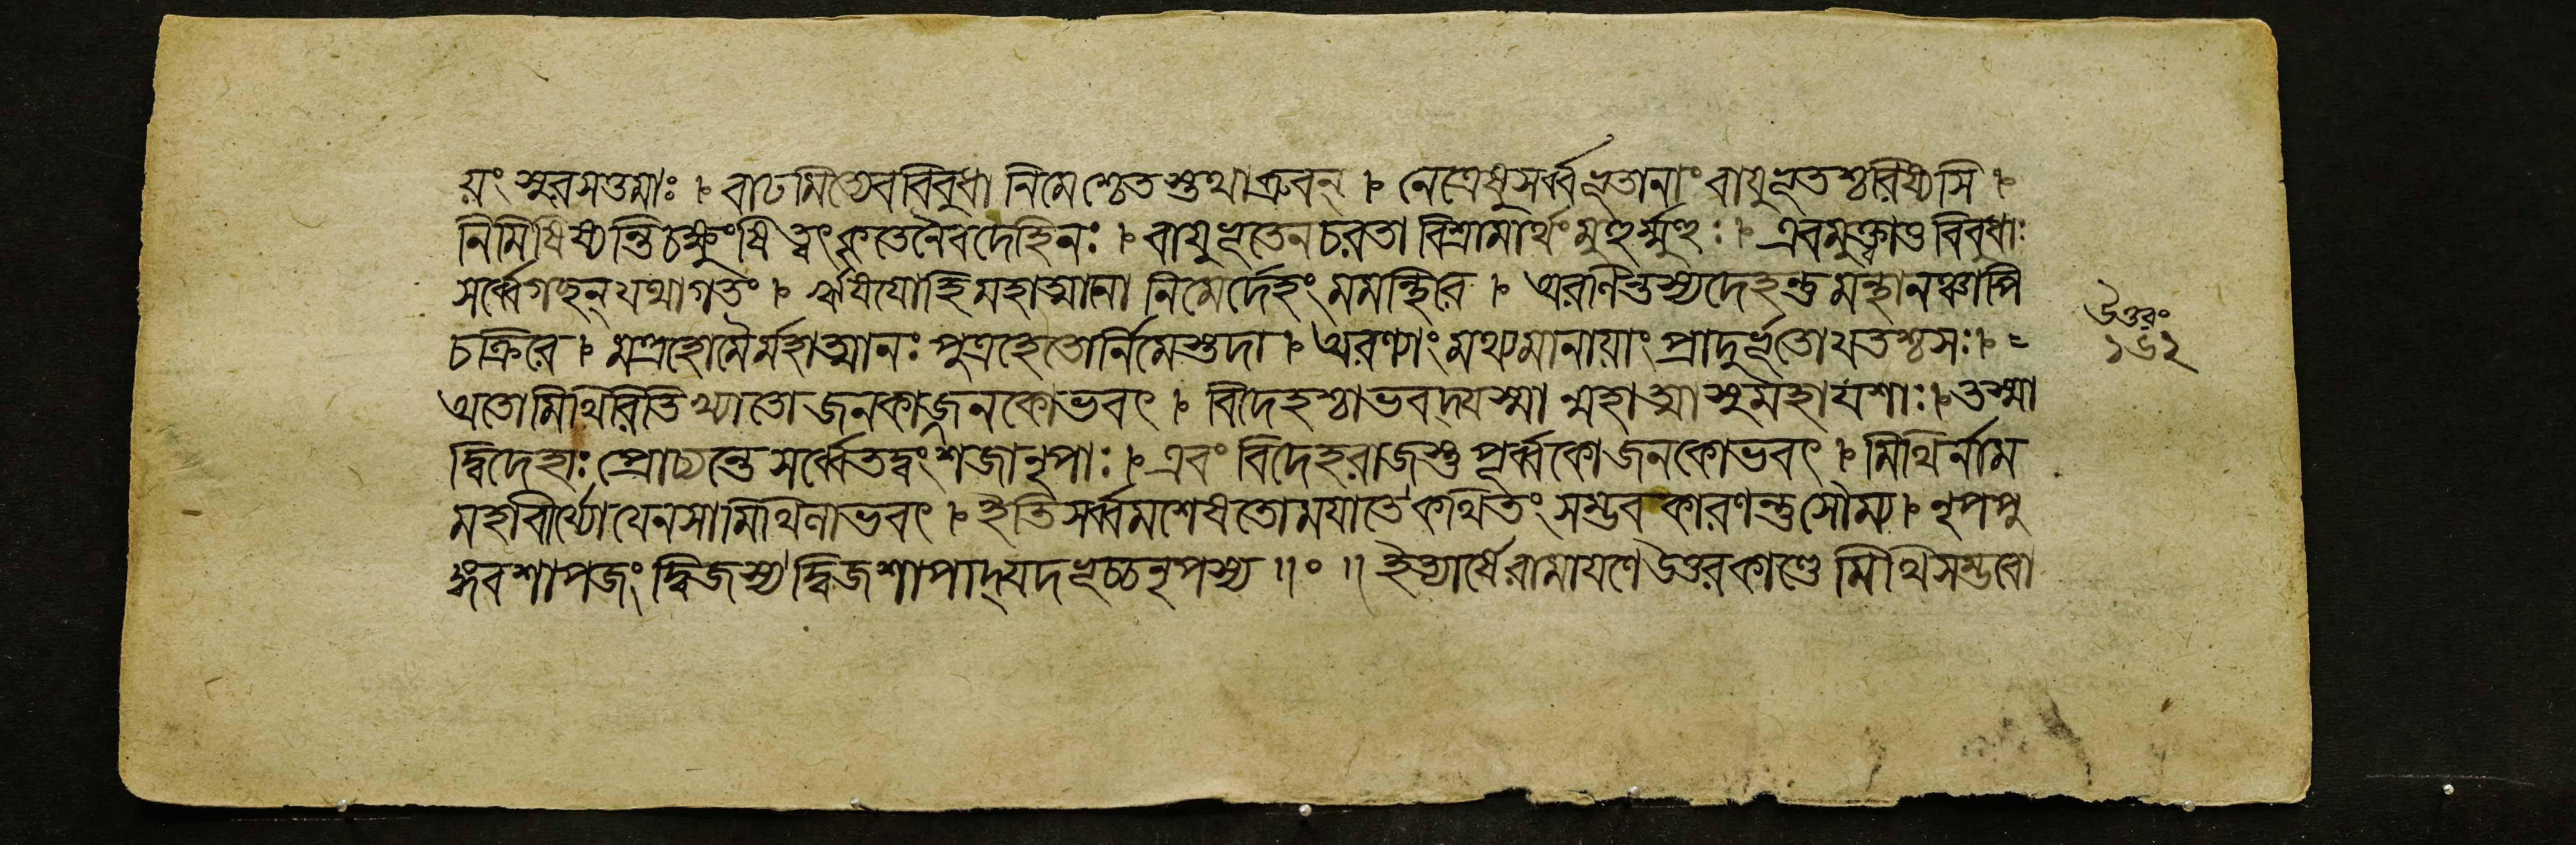 য়ং সুরসত্তমাঃ । বাঢমিত্যেব বিবুধা নিমেশ্চেতস্তথাব্রুবন্ । নেত্রেষু সর্ব্বভূতানাং বায়ুভূতশ্চরিষ্যসি ।
নিমিষিষ্যন্তি চক্ষুংষি ত্বৎকৃতেনৈব দেহিনঃ । বায়ুভূতেন চরতা বিশ্রামার্থং মুহুর্ম্মুহুঃ । এবমুক্ত্বা তু বিবুধাঃ
সর্ব্বে গছন্ যথাগতং । ঋষয়োহি মহাত্মানো নিমের্দেহং মমন্থিরে । অরণিন্তস্য দেহন্তু মন্থানঞ্চাপি
চক্রিরে । মন্ত্রহোমৈর্মহাত্মানঃ পুত্রহেতোর্নিমেস্তদা । অরণ্যাং মথ্যমানায়াং প্রাদুর্ভূতো যতশ্চ সঃ । =
অতো মিথিরিতি খ্যাতো জনকাজ্জনকোভবৎ । বিদেহশ্চাভবদ্যস্মা ন্মহাত্মা সুমহাযশাঃ । তস্মা
দ্বিদেহাঃ প্রোচ্যন্তে সর্ব্বে তদ্বংশজা নৃপাঃ । এবং বিদেহরাজস্তু পূর্ব্বকো জনকোভবৎ । মিথির্নাম
মহাবীর্য্যো যেন সা মিথিলাভবৎ । ইতি সর্ব্বমশেষতো ময়া তে কথিতং সম্ভবকারণন্তু সৌম্য । নৃপপু
ঙ্গবশাপজং দ্বিজস্য দ্বিজশাপাদ্যদভূচ্চ নৃপস্য ॥ ০ ॥ ইত্যার্ষে রামায়ণে উত্তরকাণ্ডে মিথিসম্ভবো
উত্তরং
১৬২